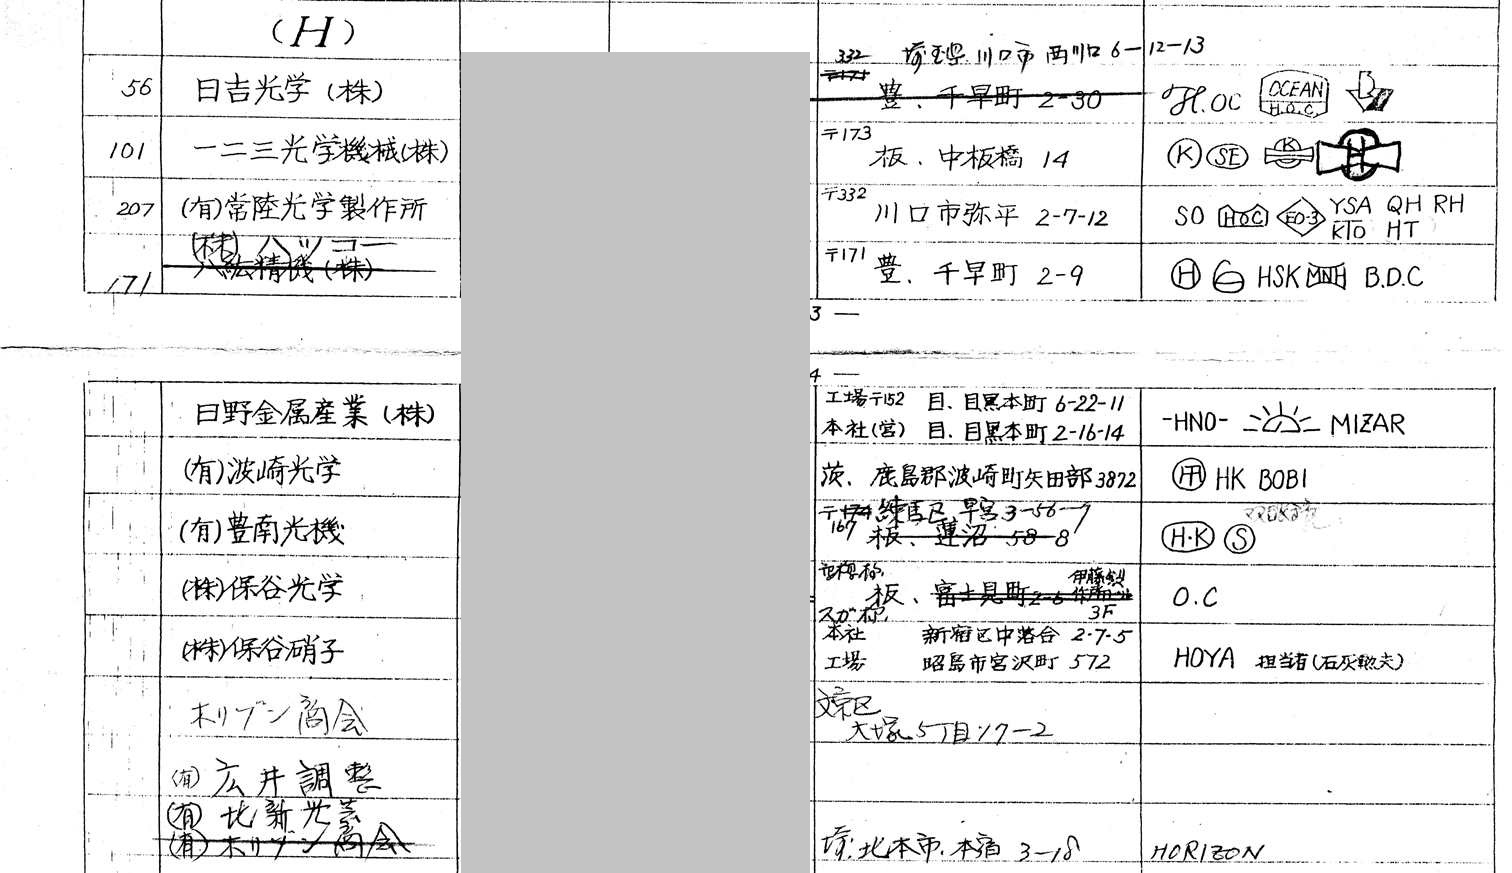 (H)
332 埼玉県川口市西川口6-12-13
〒171
56 日吉光学(株) 豊、千早町 2-30 H.OC OCEAN H.O.C.
101 一二三光学機械(株) 〒173 板、中板橋 14 K SE K H
207 (有)常陸光学製作所 〒332 川口市弥平 2-7-12 SO HOC EO-3 YSA QH RH
KTO HT
(株)ハツコー
171 八紘精機(株) 〒171 豊、千早町 2-9 H HSK MNH B.D.C
3 —
4 —
日野金属産業(株) 工場〒152 目、目黒本町 6-22-11 -HNO- MIZAR
本社(営) 目、目黒本町 2-16-14
(有)波崎光学 茨、鹿島郡波崎町矢田部3872 HK BOBI
〒174 練馬区、早宮3-56-7
(有)豊南光機 167 板、蓮沼 58-8 H·K S
(株)保谷光学 板、富士見町2-6 3F O.C
本社 新宿区中落合 2-7-5
(株)保谷硝子 工場 昭島市宮沢町 572 HOYA 担当者(石灰勲夫)
ホリゾン商会 文京区
大塚5丁目17-2
(有)広井調整
(有)北新光芸
(有)ホリゾン商会 埼、北本市、本宿 3-18 HORIZON